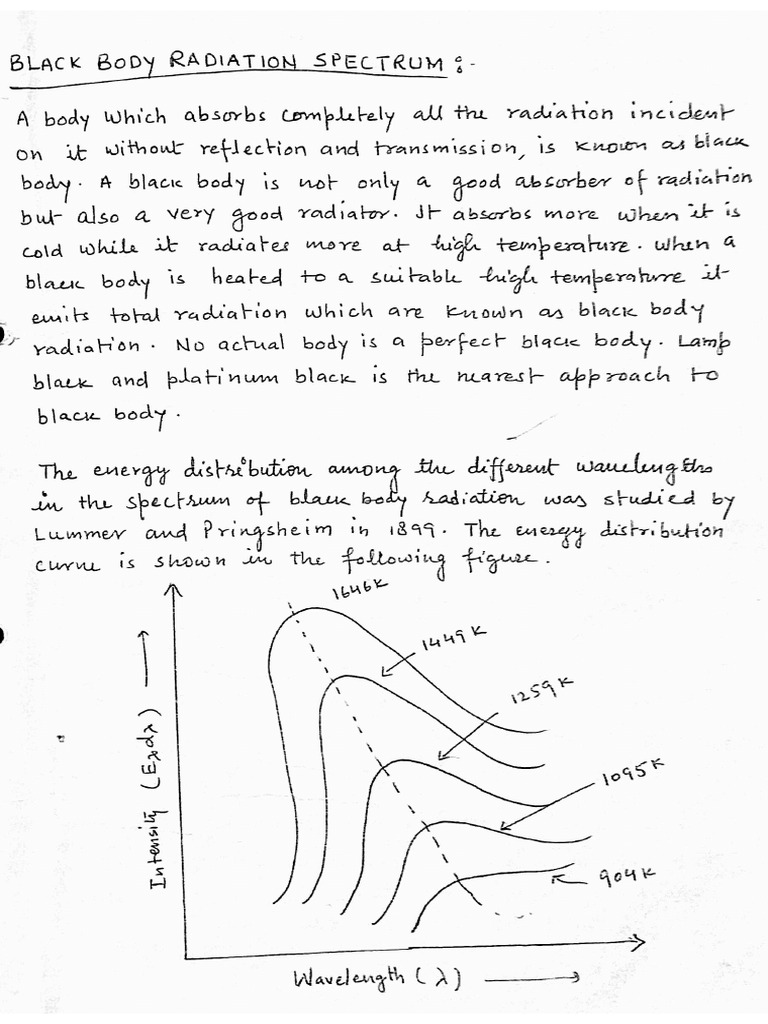 BLACK BODY RADIATION SPECTRUM :-
A body which absorbs completely all the radiation incident
on it without reflection and transmission, is known as black
body. A black body is not only a good absorber of radiation
but also a very good radiator. It absorbs more when it is
cold while it radiates more at high temperature. When a
black body is heated to a suitable high temperature it
emits total radiation which are known as black body
radiation. No actual body is a perfect black body. Lamp
black and platinum black is the nearest approach to
black body.
The energy distribution among the different wavelengths
in the spectrum of black body radiation was studied by
Lummer and Pringsheim in 1899. The energy distribution
curve is shown in the following figure.
1646K
1449K
1259K
1095K
904K
Intensity (Eλdλ)
Wavelength (λ)